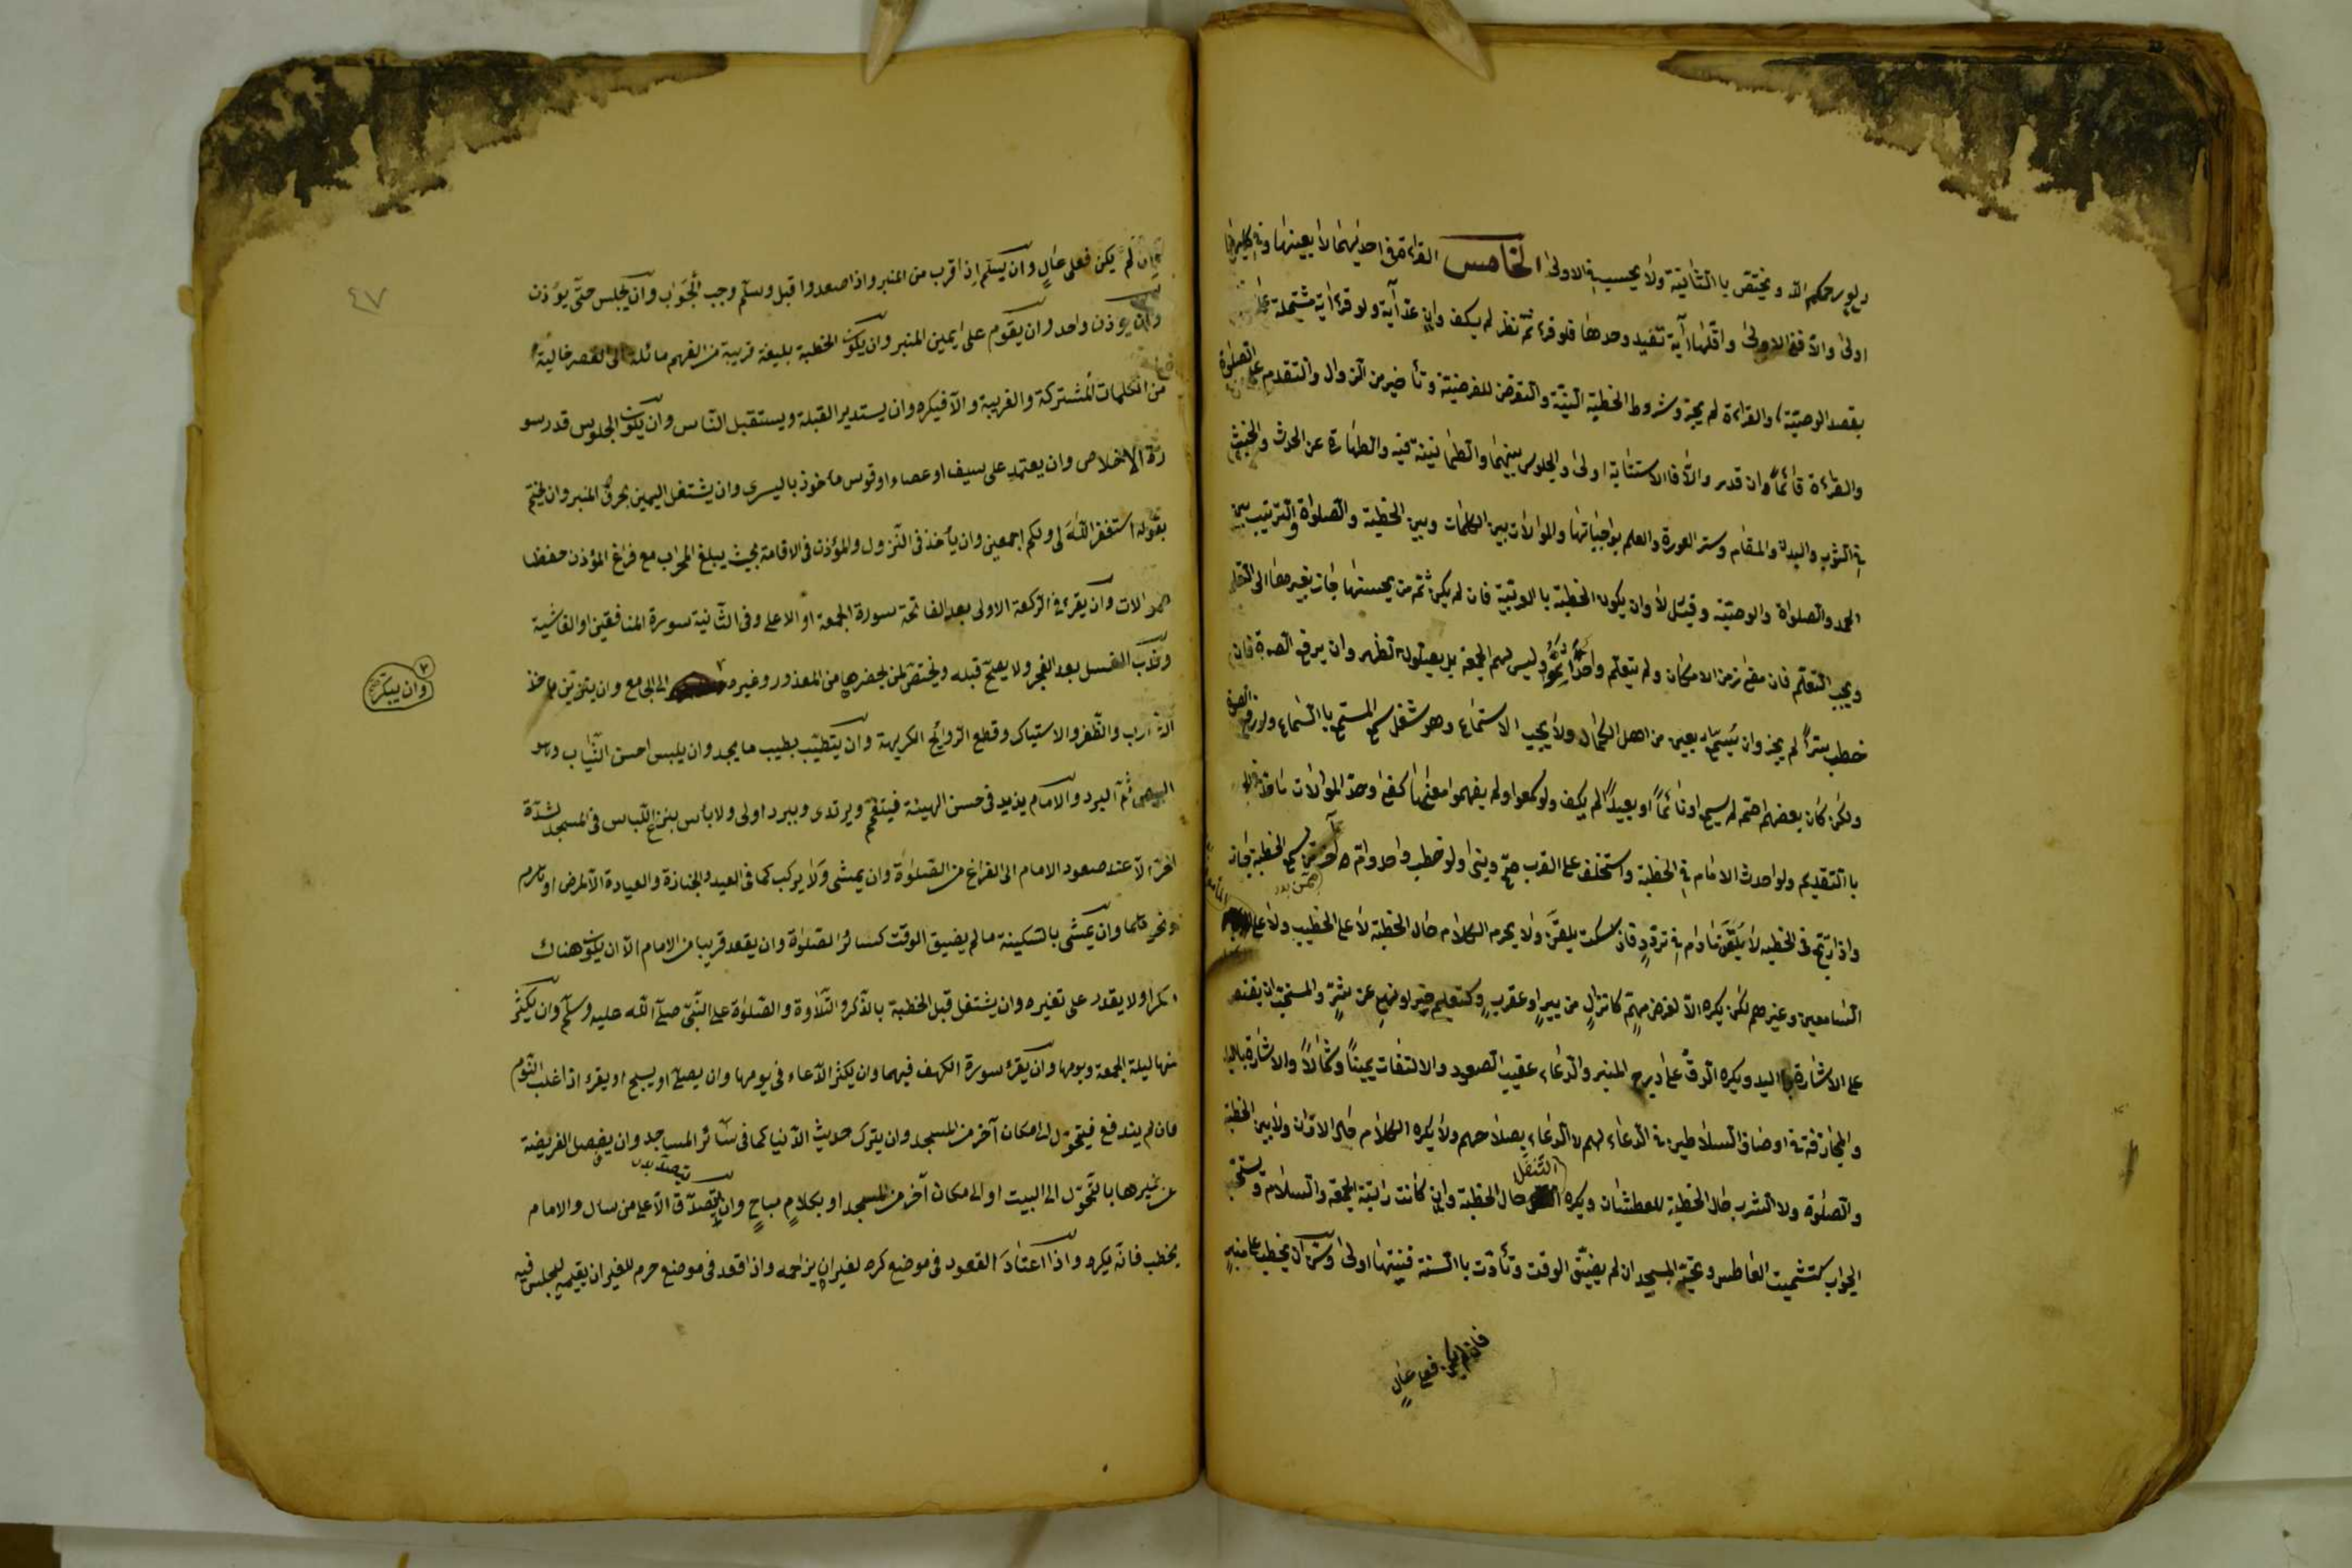 ولو رحمكم الله ويختص باالثانية ولا يحسب في الاولى الخامس القراءة في احديهما لا بعينها وفي كليهما
اولى والا ففي الاولى واقلها آية تفيد وحدها فلو قرء ثم نظر لم يكف وان عد آية ولو قرء آية مشتملة على
بقصد الوصية والقراءة لم يجز وشروط الخطبة النية والتعرض للفرضية وتأخير من الزوال والتقدم على الصلوة
والقراءة قائماً وان قدر والا فالاستنابة اولى والجلوس بينهما والطمانينة فيه والطهارة عن الحدث والخبث
في الثوب والبدن والمقام وستر العورة والعلم بواجباتها والموالات بين الكلمات وبين الخطبة والصلواة والترتيب بين
الحمد والصلواة والوصية وقيل لا وان يكون الخطبة باالعربية فان لم يكن ثمه من يحسنها جاز بغيرها الى التعلم
ويجب التعلم فان مضى زمن الامكان ولم يتعلم واحد وليس لهم الجمعة بل يصلون الظهر وان يرفع الصوت فان
خطب سراً لم يجز وان يسمع اربعين من اهل الكمال ولا يجب الاستماع وهو شغل سمع المستمع باالسماع ولو رفع الصوت
ولكن كان بعضهم اصم لم يسمع او نائماً او بعيداً لم يكف ولو سمعوا ولم يفهموا معنها كفى وحد الموالات
باالتقديم ولو احدث الامام في الخطبة واستخلف على القرب صح وبنى ولو خطب واحد وام آخر ممن سمع الخطبة جاز
واذا ارتج في الخطبة لا يلقن مادام في تردد فان سكت يلقن ولا يحرم الكلام حال الخطبة لا على الخطيب ولا على
السامعين وغيرهم لكن يكره الا لغرض مهم كانزال من بير او عقرب وكتعليم خير او نهي عن شر والمستحب ان يقتصر
على الاشارة باليد ويكره الدق على درج المنبر والدعاء عقيب الصعود والالتفات يميناً وشمالاً والاشارة باليد
والمجازفة في اوصاف السلاطين في الدعاء لهم لا الدعاء بصلاحهم ولا يكره الكلام حال الاذان ولا بين الخطبة
والصلوة ولا الشرب حال الخطبة للعطشان ويكره التنفل حال الخطبة وان كانت راتبة الجمعة والسلام ويستحب
الجواب كتشميت العاطس وتحية المسجد ان لم يضيق الوقت وتأدت باالسنة فنيتها اولى وسن ان يخطب على منبر
فان لم يكن فعلى عال
٤٧
فان لم يكن فعلى عالٍ وان يسلم اذا قرب من المنبر واذا صعد واقبل وسلم وجب الجواب وان يجلس حتى يؤذن
وان يؤذن واحد وان يقوم على يمين المنبر وان يكون الخطبة بليغة قريبة من الفهم مائلة الى القصر خالية
من الكلمات المشتركة والغريبة والا فيكره وان يستدبر القبلة ويستقبل الناس وان يكون الجلوس قدر سو
رة الاخلاص وان يعتمد على سيف او عصاء او قوس مأخوذ باليسرى وان يشتغل اليمين بحرف المنبر وان يختم
بقوله استغفر الله لى ولكم اجمعين وان يأخذ فى النزول والمؤذن فى الاقامة بحيث يبلغ المحراب مع فراغ المؤذن حفظا
للموالات وان يقرء فى الركعة الاولى بعد الفاتحة سورة الجمعة او الاعلى وفى الثانية سورة المنافقين او الغاشية
وندب الغسل بعد الفجر ولا يصح قبله ويختص لمن يحضرها من المعذور وغيره الى الجامع وان يتزين باخذ
وان يبكر
والظفر والاستياك وقطع الروايح الكريهة وان يتطيب بطيب ما يجد وان يلبس احسن الثياب وهو
البيض ثم البرد والامام يزيد فى حسن الهيئة فيتعمم ويرتدى وببرد اولى ولا بأس بنزع اللباس فى المسجد لشدة
الحر الا عند صعود الامام الى الفراغ من الصلوة وان يمشى ولا يركب كما فى العيد والجنازة والعيادة الا لمرض او
ونحوهما وان يمشى بالسكينة ما لم يضيق الوقت كسائر الصلوة وان يقعد قريبا من الامام الا ان يكون هناك
منكرا ولا يقدر على تغييره وان يشتغل قبل الخطبة بالذكر والتلاوة والصلوة على النبى صلى الله عليه وسلم وان يكثر
منها ليلة الجمعة ويومها وان يقرء سورة الكهف فيهما وان يكثر الدعاء فى يومها وان يصلى او يسبح او يقرء اذا غلب النوم
فان لم يندفع فيتحول الى مكان آخر من المسجد وان يترك حديث الدنيا كما فى سائر المساجد وان يفصل الفريضة
عن غيرها بالتحول الى البيت او الى مكان آخر من المسجد او بكلام مباح وان يتصدق الا على من سال والامام
يخطب فانه يكره واذا اعتاد القعود فى موضع كره لغيره ان يزاحمه واذا قعد فى موضع حرم للغير ان يقيمه ليجلس فيه